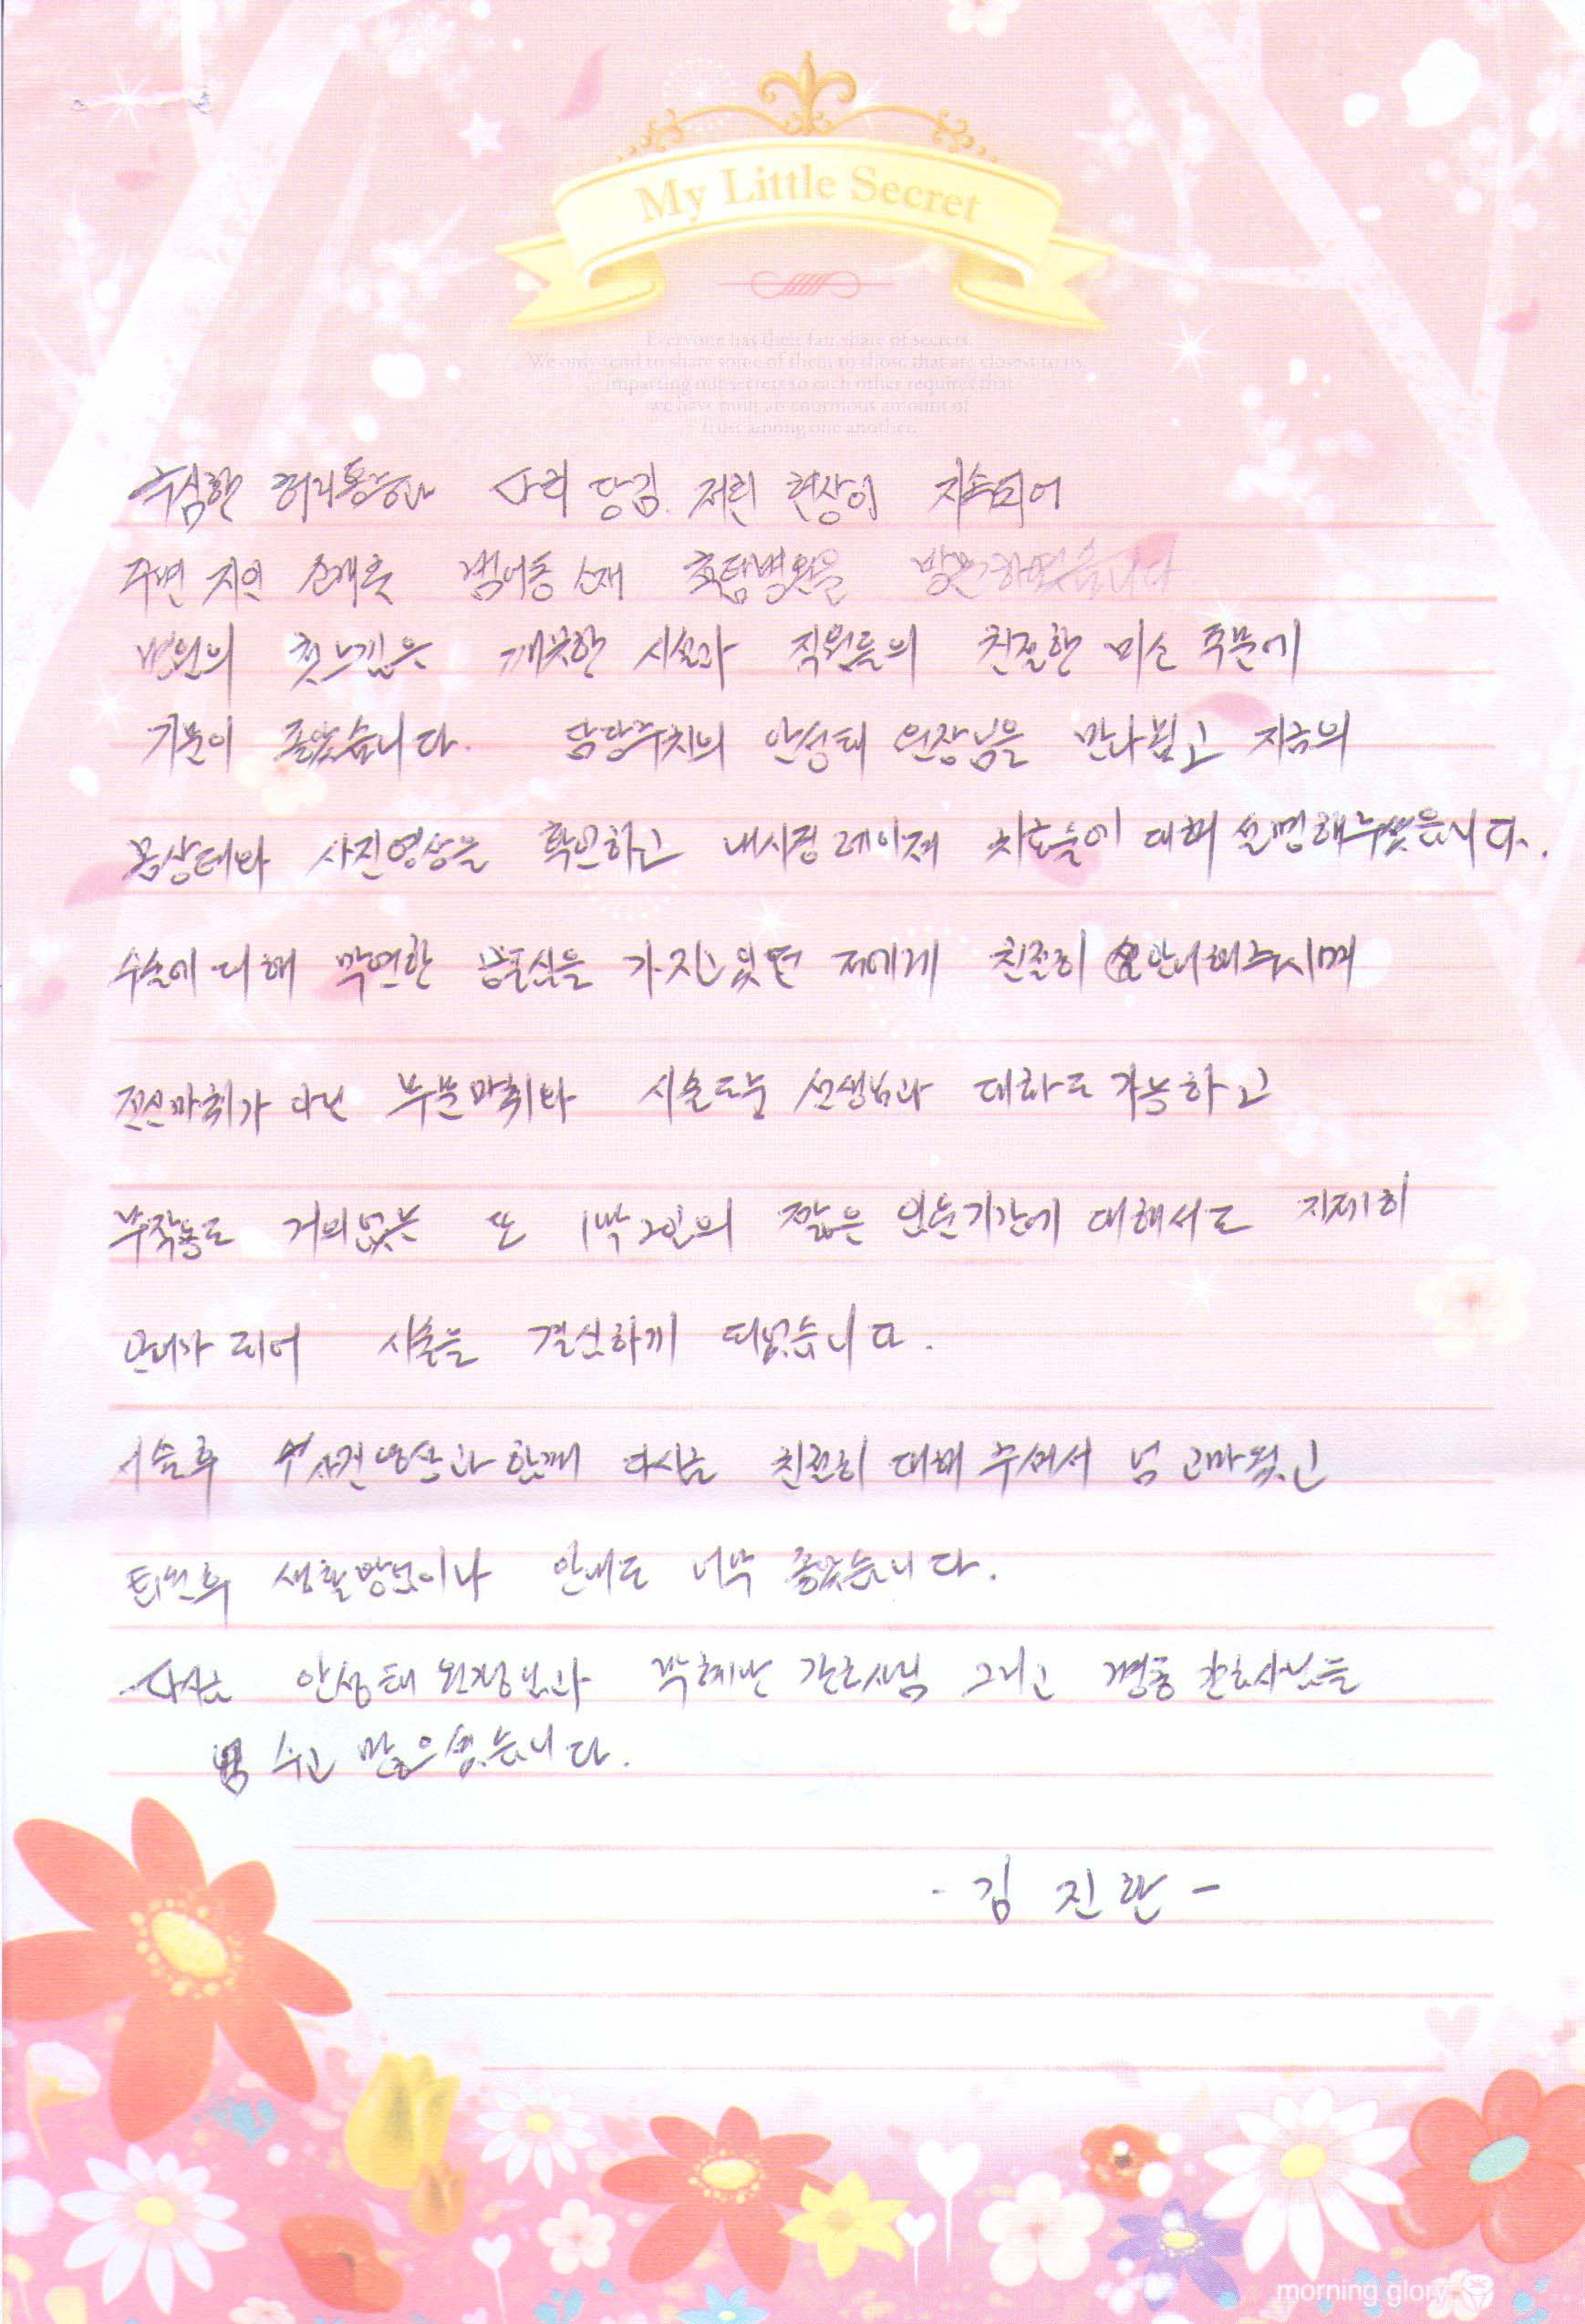 My Little Secret
Everyone has their fair share of secrets.
We only tend to share some of them to those that are closest to us.
Imparting our secrets to each other requires that
we have built an enormous amount of
trust among one another.
심한 허리통증과 다리 당김. 저린 현상이 지속되어
주변 지인 소개로 범어동 소재 병원을 방문하였습니다
병원의 첫느낌은 깨끗한 시설과 직원들의 친절한 미소 때문에
기분이 좋았습니다. 담당주치의 안성태 원장님을 만나뵙고 지금의
몸상태와 사진영상을 확인하고 내시경 레이져 시술에 대해 설명해주셨읍니다.
수술에 대해 막연한 공포심을 가지고 있던 저에게 친절히 안내해주시며
전신마취가 아닌 부분마취와 시술도중 선생님과 대화도 가능하고
부작용도 거의없는 또 1박2일의 짧은 입원기간에 대해서도 자세히
안내가 되어 시술을 결심하게 되었습니다.
시술후 사진영상과 함께 다시금 친절히 대해 주셔서 넘 고마웠고
퇴원후 생활방법이나 안내도 너무 좋았습니다.
다시금 안성태 원장님과 간호사님 그리고 병동 간호사님들
수고 많으셨습니다.
- 김진환 -
morning glory